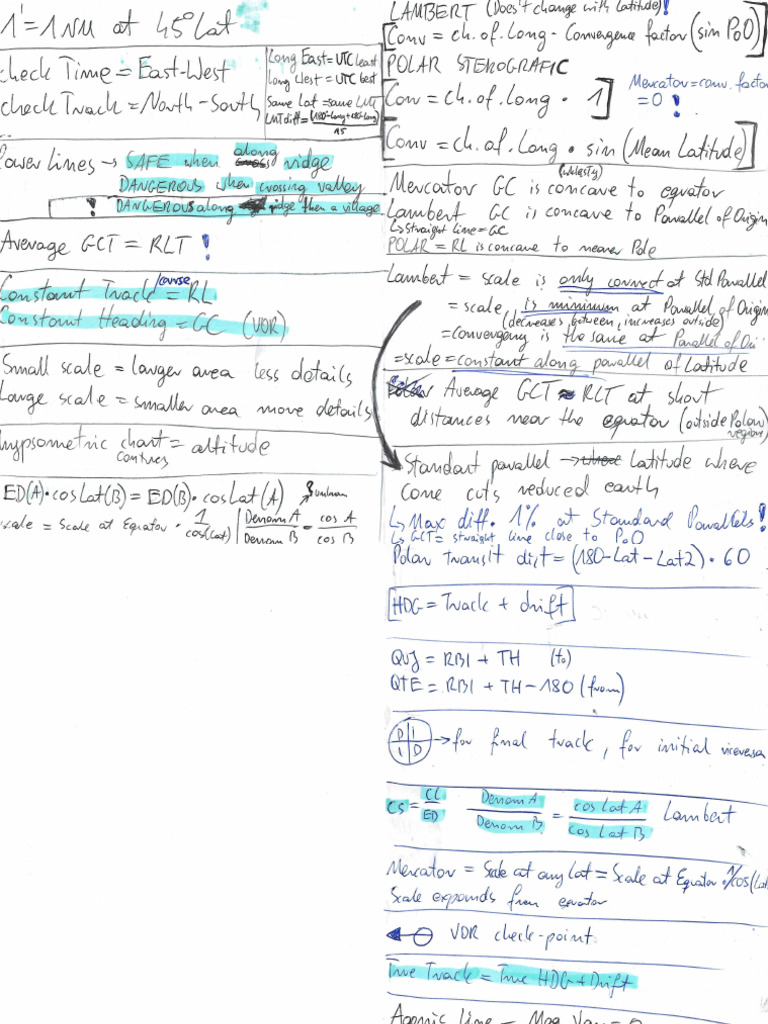 1' = 1 NM at 45° Lat
check Time = East-West
check Track = North-South
Long East = UTC least
Long West = UTC best
same Lat = same LMT
LMT diff =
15
Power Lines → SAFE when along ridge
DANGEROUS when crossing valley
! DANGEROUS along ridge then a village
Average GCT = RLT !
Constant Track = RL
course
Constant Heading = GC (VOR)
Small scale = larger area less details
Large scale = smaller area more details
hypsometric chart = altitude
contures
ED(A)·cosLat(B) = ED(B)·cosLat(A)
scale = Scale at Equator · 1/cos(Lat) | Denom A/Denom B = cos A/cos B
LAMBERT (Doesn't change with Latitude)!
Conv = ch.of.Long · Convergence factor (sin PoO)
POLAR STEROGRAFIC
Conv = ch.of.Long · 1
Mercator = conv. factor
= 0 !
Conv = ch.of.Long · sin (Mean Latitude)
Mercator GC is concave to equator
Lambert GC is concave to Parallel of Origin
↳ straight line = GC
POLAR = RL is concave to nearer Pole
Lambert = scale is only correct at Std Parallel
= scale is minimum at Parallel of Origin
(decreases between, increases outside)
= convergency is the same at Parallel of Ori
= scale = constant along parallel of Latitude
Average GCT ≈ RLT at short
distances near the equator (outside Polar
region)
Standart parallel → Latitude where
cone cuts reduced earth
↳ Max diff. 1% at Standard Parallels!
↳ GCT = straight line close to PoO
Polar transit dist = (180-Lat-Lat2) · 60
HDG = Track + drift
QUJ = RBI + TH (to)
QTE = RBI + TH - 180 (from)
D I
I D
→ for final track, for initial viceversa
CS = CL/ED Denom A/Denom B = cos Lat A/cos Lat B Lambert
Mercator = Scale at any Lat = Scale at Equator · 1/cos(Lat
Scale expands from equator
VOR check-point
True Track = True HDG + Drift
Agonic Line - Mag Var = 0